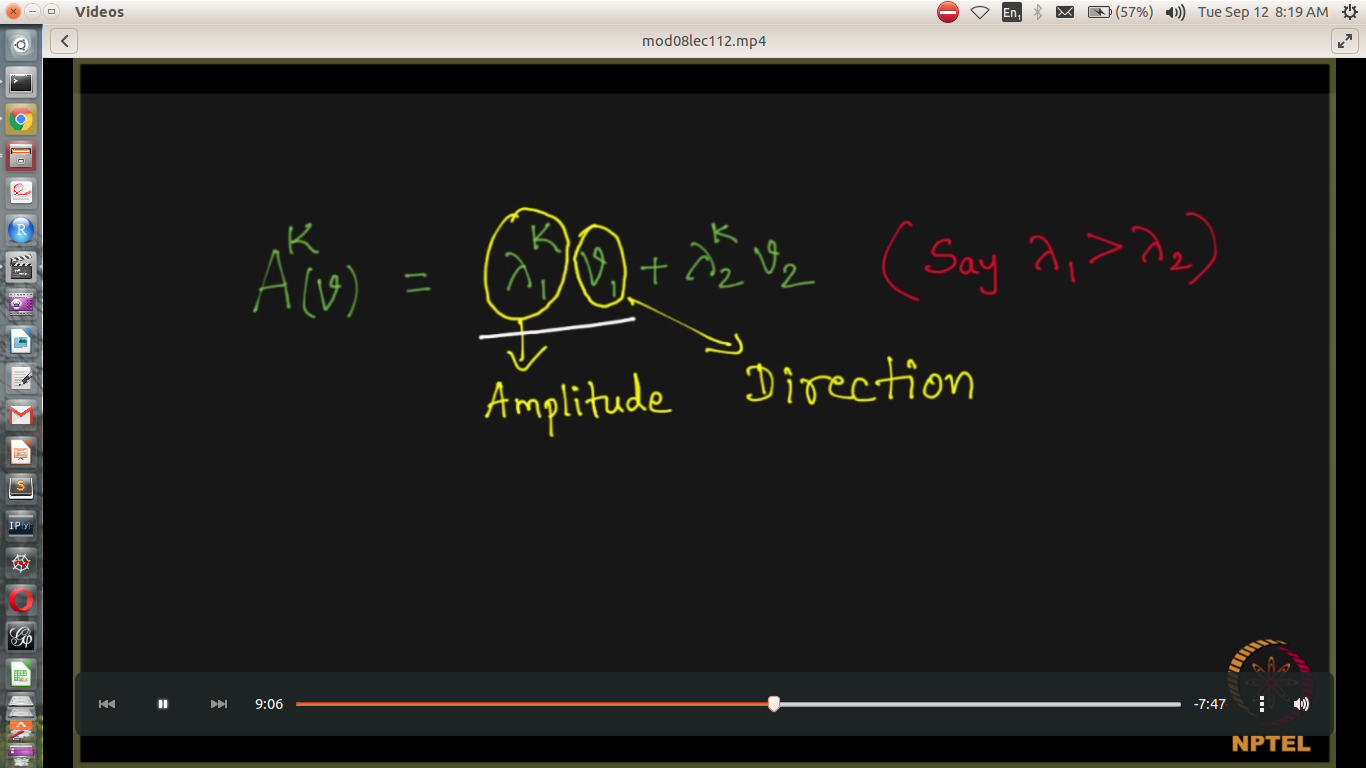 Videos
En₁
(57%)
Tue Sep 12 8:19 AM
mod08lec112.mp4
Aᴷ(v) = λ₁ᴷ v₁ + λ₂ᴷ v₂ (Say λ₁ > λ₂)
Amplitude
Direction
9:06
-7:47
NPTEL
R
S
IP[y]: